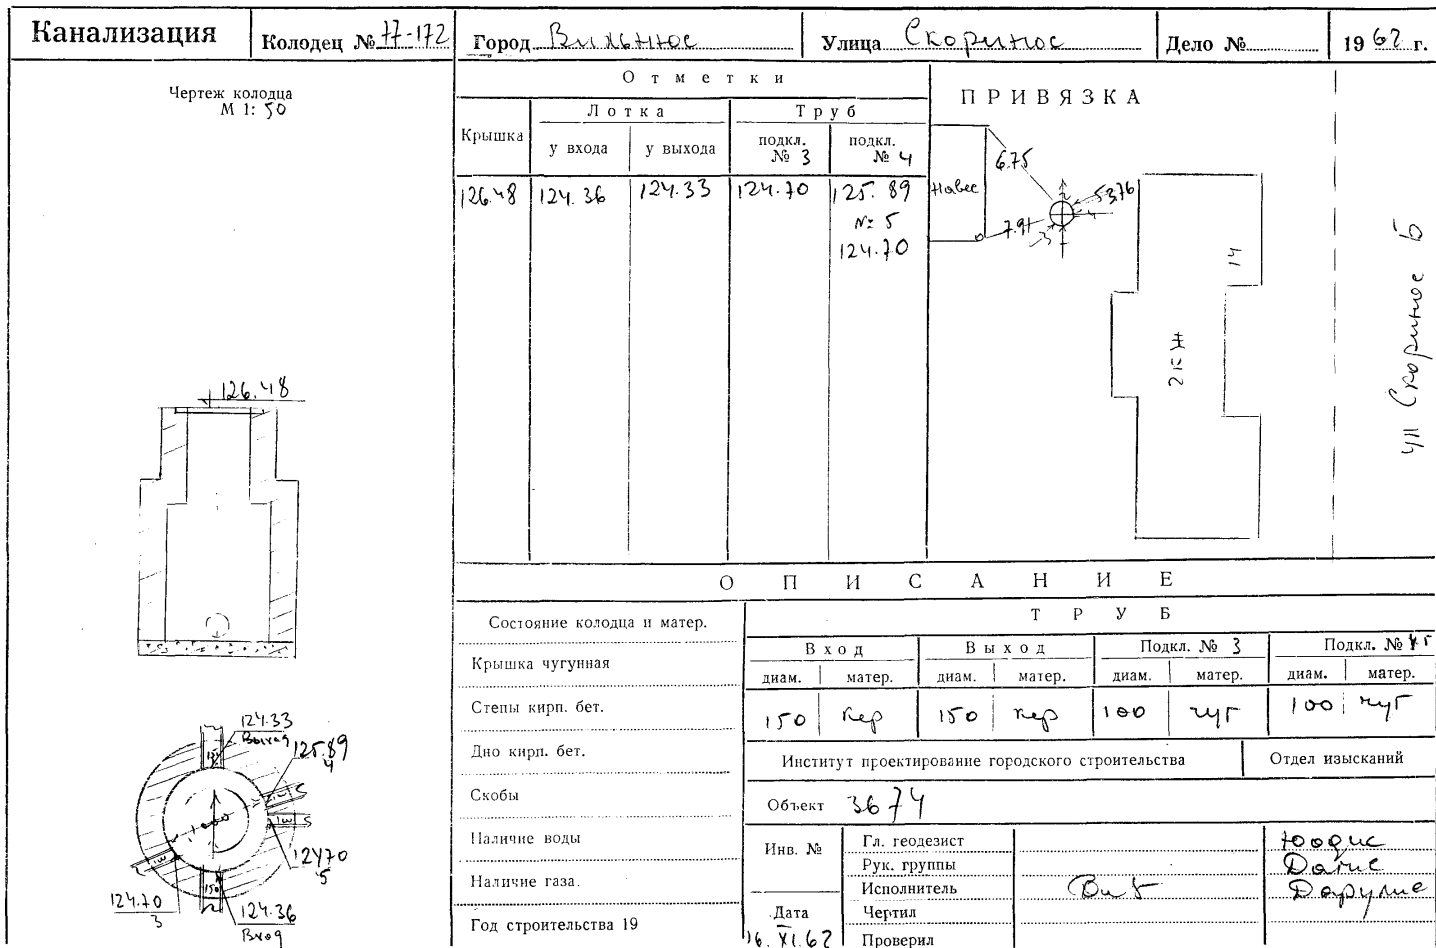 Канализация
Колодец № 77-172
Город Вильнюс
Улица Скоринос
Дело №
1962 г.
Чертеж колодца
М 1: 50
126.48
124.33
Выход
125.89
4
150
1000
100
100
100
150
124.70
5
124.70
3
124.36
Вход
Отметки
Крышка
Лотка
Труб
у входа
у выхода
подкл. № 3
подкл. № 4
126.48 124.36 124.33 124.70 125.89
№ 5
124.70
ПРИВЯЗКА
Навес
6.75
7.91
2
4
3
1
14
2КЖ
ул Скоринос Б
ОПИСАНИЕ
Состояние колодца и матер.
Крышка чугунная
Степы кирп. бет.
Дно кирп. бет.
Скобы
Наличие воды
Наличие газа.
Год строительства 19
ТРУБ
Вход
Выход
Подкл. № 3
Подкл. № 4 5
диам. матер. диам. матер. диам. матер. диам. матер.
150 кер 150 кер 100 чуг 100 чуг
Институт проектирование городского строительства
Отдел изысканий
Объект 3674
Инв. №
Гл. геодезист Юодис
Рук. группы
Исполнитель
Дата
16.XI.62
Чертил
Проверил